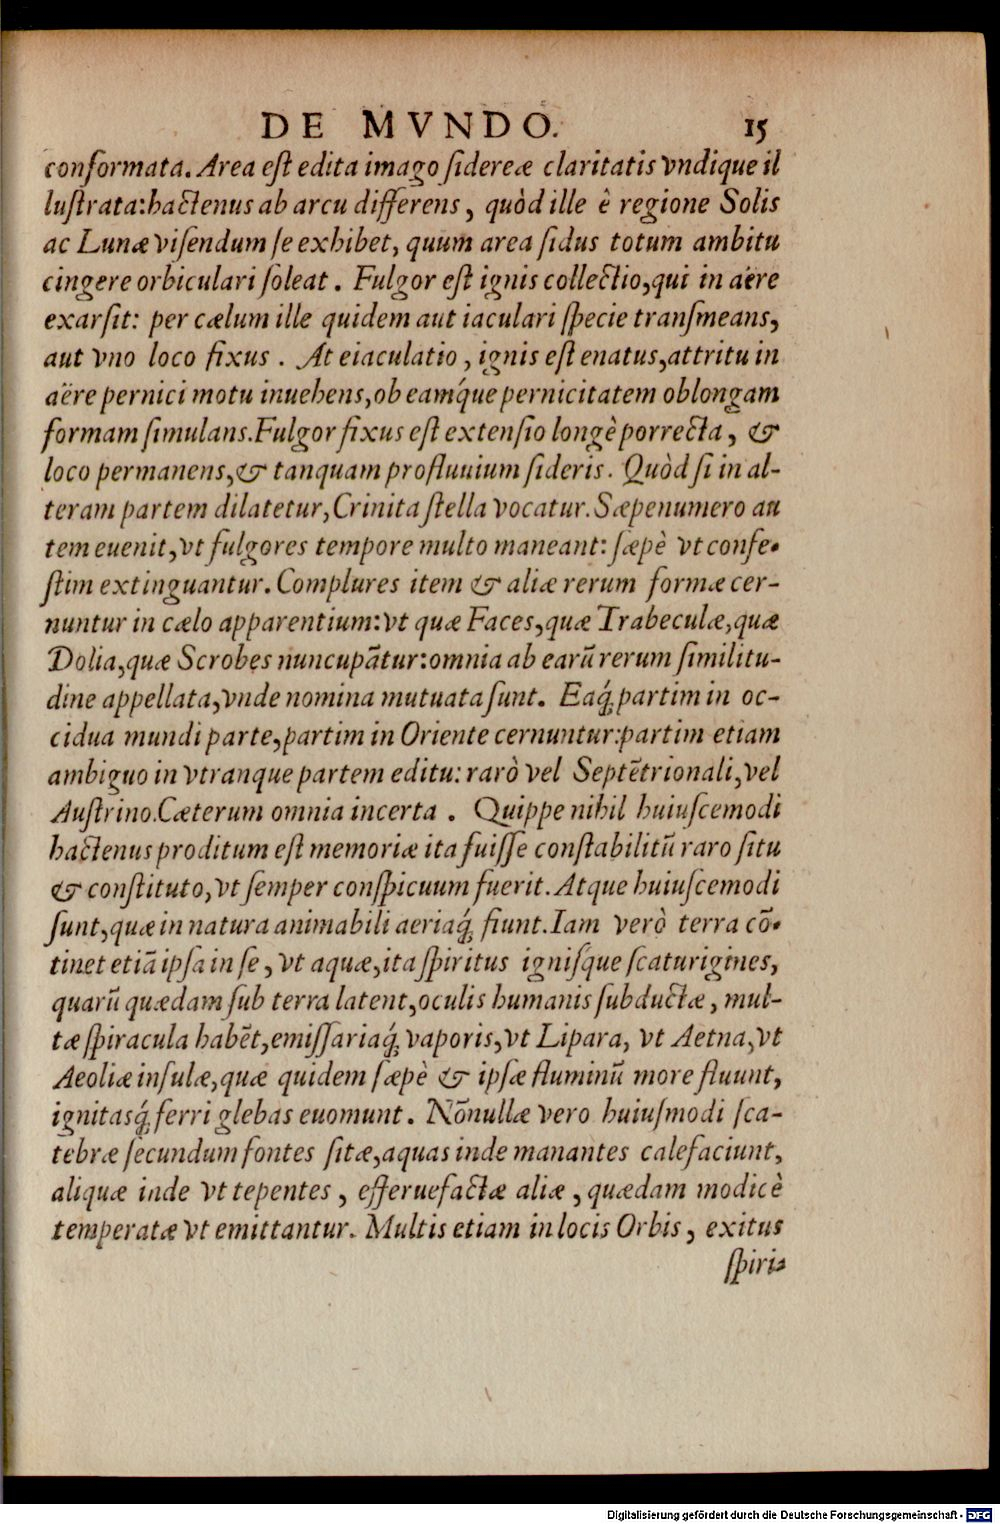 DE MVNDO. 15
conformata. Area eſt edita imago ſidereæ claritatis vndique il
luſtrata: hactenus ab arcu differens, quòd ille è regione Solis
ac Lunæ viſendum ſe exhibet, quum area ſidus totum ambitu
cingere orbiculari ſoleat. Fulgor eſt ignis collectio, qui in aëre
exarſit: per cælum ille quidem aut iaculari ſpecie tranſmeans,
aut vno loco fixus. At eiaculatio, ignis eſt enatus, attritu in
aëre pernici motu inuehens, ob eamq́ue pernicitatem oblongam
formam ſimulans. Fulgor fixus eſt extenſio longè porrecta, &
loco permanens, & tanquam profluuium ſideris. Quòd ſi in al-
teram partem dilatetur, Crinita ſtella vocatur. Sæpenumero au
tem euenit, vt fulgores tempore multo maneant: ſæpè vt confe-
ſtim extinguantur. Complures item & aliæ rerum formæ cer-
nuntur in cælo apparentium: vt quæ Faces, quæ Trabeculæ, quæ
Dolia, quæ Scrobes nuncupãtur: omnia ab earũ rerum ſimilitu-
dine appellata, vnde nomina mutuata ſunt. Eaq́; partim in oc-
cidua mundi parte, partim in Oriente cernuntur: partim etiam
ambiguo in vtranque partem editu: rarò vel Septẽtrionali, vel
Auſtrino. Cæterum omnia incerta. Quippe nihil huiuſcemodi
hactenus proditum eſt memoriæ ita fuiſſe conſtabilitũ raro ſitu
& conſtituto, vt ſemper conſpicuum fuerit. Atque huiuſcemodi
ſunt, quæ in natura animabili aeriaq́; fiunt. Iam verò terra cõ-
tinet etiã ipſa in ſe, vt aquæ, ita ſpiritus igniſque ſcaturigines,
quarũ quædam ſub terra latent, oculis humanis ſubductæ, mul-
tæ ſpiracula habẽt, emiſſariaq́; vaporis, vt Lipara, vt Aetna, vt
Aeoliæ inſulæ, quæ quidem ſæpè & ipſæ fluminũ more fluunt,
ignitasq́; ferri glebas euomunt. Nõnullæ vero huiuſmodi ſca-
tebræ ſecundum fontes ſitæ, aquas inde manantes calefaciunt,
aliquæ inde vt tepentes, efferuefactæ aliæ, quædam modicè
temperatæ vt emittantur. Multis etiam in locis Orbis, exitus
ſpiri-
Digitalisierung gefördert durch die Deutsche Forschungsgemeinschaft - DFG